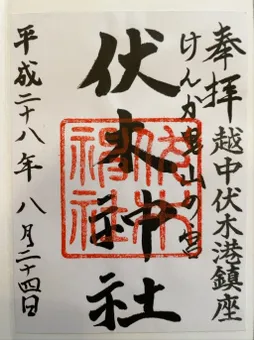 奉拝 越中伏木港鎮座
けんか山の宮
伏木神社
伏木神社
平成二十八年 八月二十四日